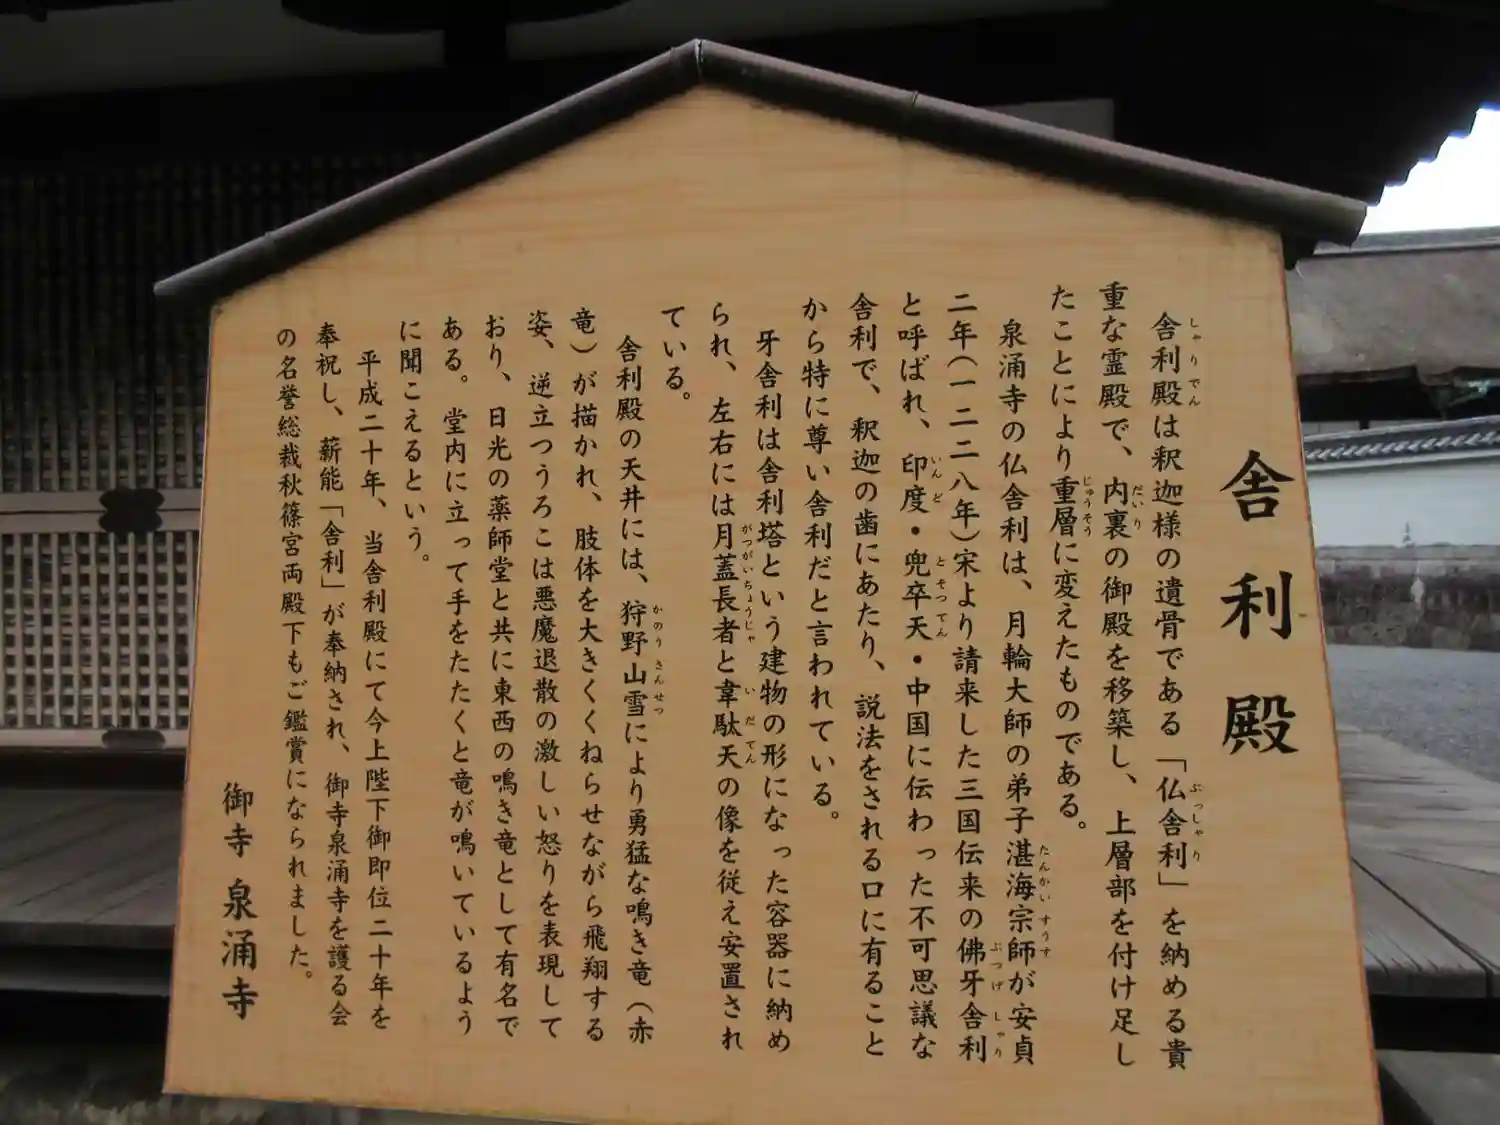 舎利殿
舎利殿は釈迦様の遺骨である「仏舎利」を納める貴
重な霊殿で、内裏の御殿を移築し、上層部を付け足し
たことにより重層に変えたものである。
泉涌寺の仏舎利は、月輪大師の弟子湛海宗師が安貞
二年(一二二八年)宋より請来した三国伝来の佛牙舎利
と呼ばれ、印度・兜卒天・中国に伝わった不可思議な
舎利で、釈迦の歯にあたり、説法をされる口に有ること
から特に尊い舎利だと言われている。
牙舎利は舎利塔という建物の形になった容器に納め
られ、左右には月蓋長者と韋駄天の像を従え安置され
ている。
舎利殿の天井には、狩野山雪により勇猛な鳴き竜(赤
竜)が描かれ、肢体を大きくくねらせながら飛翔する
姿、逆立つうろこは悪魔退散の激しい怒りを表現して
おり、日光の薬師堂と共に東西の鳴き竜として有名で
ある。堂内に立って手をたたくと竜が鳴いているよう
に聞こえるという。
平成二十年、当舎利殿にて今上陛下御即位二十年を
奉祝し、薪能「舎利」が奉納され、御寺泉涌寺を護る会
の名誉総裁秋篠宮両殿下もご鑑賞になられました。
御寺 泉涌寺
しゃりでん
ぶっしゃり
だいり
じゅうそう
たんかいすうす
ぶつげしゃり
いんど
とそつてん
がつがいちょうじゃ
いだてん
かのうさんせつ